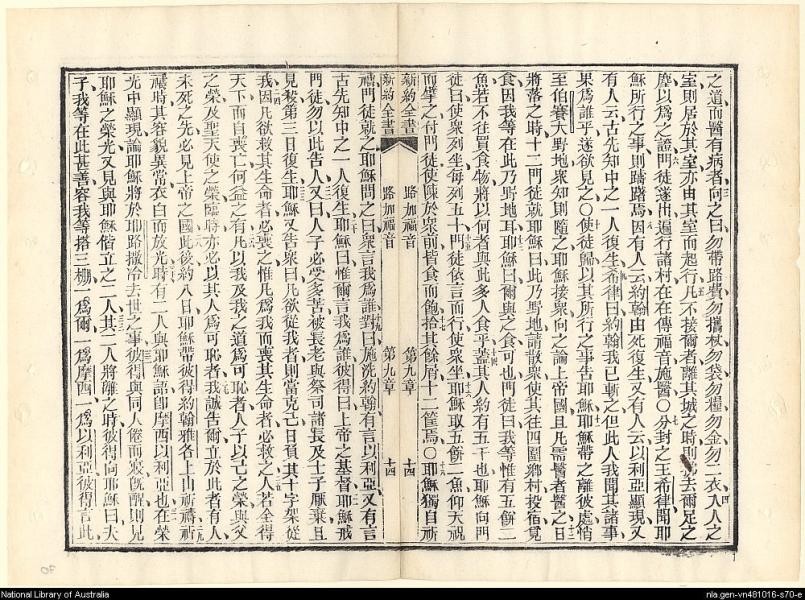 之道而醫有病者向之曰勿帶路費勿攜杖勿袋勿糧勿金勿二衣入人之
室則居於其室亦由其室而起行凡不接爾者離其城之時則拂去爾足之
塵以為之證門徒遂出遍行諸村在在傳福音施醫○分封之王希律聞耶
穌所行之事則躊躇焉因有人云約翰由死復生又有人云以利亞顯現又
有人云古先知中之一人復生希律曰約翰我已斬之但此人我聞其諸事
果為誰乎遂欲見之○使徒歸以其所行之事告耶穌耶穌帶之離彼處悄
至伯賽大野地衆知則隨之耶穌接衆向之論上帝國且凡需醫者醫之日
將落之時十二門徒就耶穌曰此乃野地請散衆使其往四圍鄉村投宿覓
食因我等在此乃野地耳耶穌曰爾與之食可也門徒曰我等惟有五餅二
魚若不往買食物將以何者與此多人食乎蓋其人約有五千也耶穌向門
徒曰使衆列坐每列五十門徒依言而行使衆坐耶穌取五餅二魚仰天祝
而擘之付門徒使陳於衆前皆食而飽拾其餘屑十二筐焉○耶穌獨自祈
新約全書 路加福音 第九章 十四
新約全書 路加福音 第九章 十四
禱門徒就之耶穌問之曰衆言我為誰對曰施洗約翰有言以利亞又有言
古先知中之一人復生耶穌曰惟爾言我為誰彼得曰上帝之基督耶穌戒
門徒勿以此告人又曰人子必受多苦被長老與祭司諸長及士子厭棄且
見殺第三日復生耶穌又告衆曰凡欲從我者則當克己日負其十字架從
我因凡欲救其生命者必喪之惟凡為我而喪其生命者必救之人若全得
天下而自喪亡何益之有凡以我及我之道為可恥者人子以己之榮與父
之榮及聖天使之榮臨時亦必以其人為可恥者我誠告爾立於此者有人
未死之先必見上帝之國此後約八日耶穌帶彼得約翰雅各上山祈禱祈
禱時其容貌異常衣白而放光時有二人與耶穌語即摩西以利亞也在榮
光中顯現論耶穌將於耶路撒冷去世之事彼得與同人倦而寢旣醒則見
耶穌之榮光又見與耶穌偕立之二人其二人將離之時彼得向耶穌曰夫
子我等在此甚善容我等搭三棚一為爾一為摩西一為以利亞彼得言此
National Library of Australia
nla.gen-vn481016-s70-e